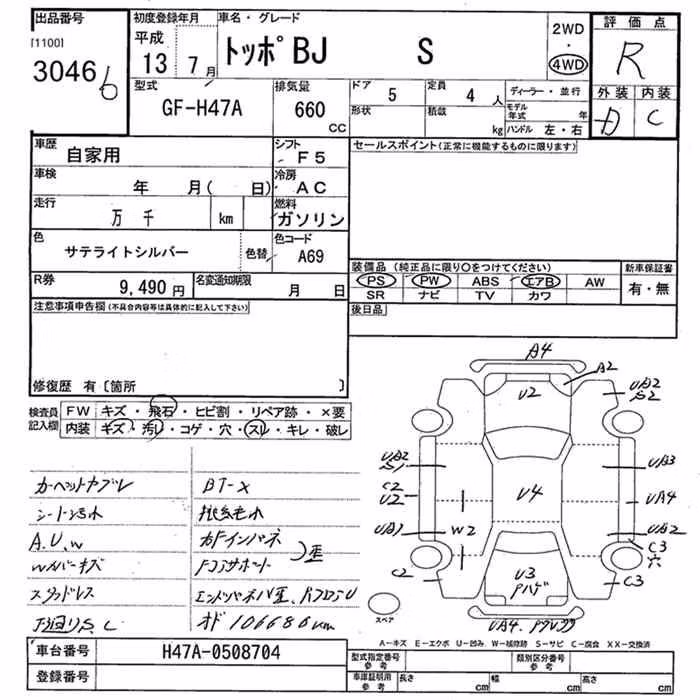 出品番号
[1100]
3046
初度登録年月
平成
13 7月
車名・グレード
トッポBJ S
2WD
・
4WD
評価点
R
外装 内装
D C
型式
GF-H47A
排気量
660
CC
ドア
5
定員
4 人
形状
積載
kg
ディーラー・並行
モデル年式 年
ハンドル 左・右
車歴
自家用
シフト
F5
車検
年 月( 日)
冷房
AC
走行
万 千 km
燃料
ガソリン
色
サテライトシルバー
色替
色コード
A69
R券
9,490円
名変通知期限
月 日
セールスポイント(正常に機能するものに限ります)
装備品(純正品に限り○をつけてください)
新車保証書
PS PW ABS エアB AW
SR ナビ TV カワ
有・無
後日品
注意事項申告欄(不具合内容等は具体的に記入して下さい)
修復歴 有〔箇所 〕
検査員記入欄
FW キズ・飛石・ヒビ割・リペア跡・×要
内装 キズ・汚レ・コゲ・穴・スレ・キレ・破レ
カーペットヤブレ
シート汚れ
A.U.W
Wカバーキズ
スタッドレス
下廻りS.C
オド106686km
A4
A2
U2
UA2
S2
UA2
S1
UA3
C2
U2
U4
UA4
UA1
W2
UA2
C3
穴
C2
U3
C3
スペア
UA4.
A−キズ E−エクボ U−凹み W−補修跡 S−サビ C−腐食 XX−交換済
車台番号
H47A-0508704
登録番号
型式指定番号
参考
類別区分番号
参考
車庫証明用
参考
長さ cm
幅 cm
高さ cm